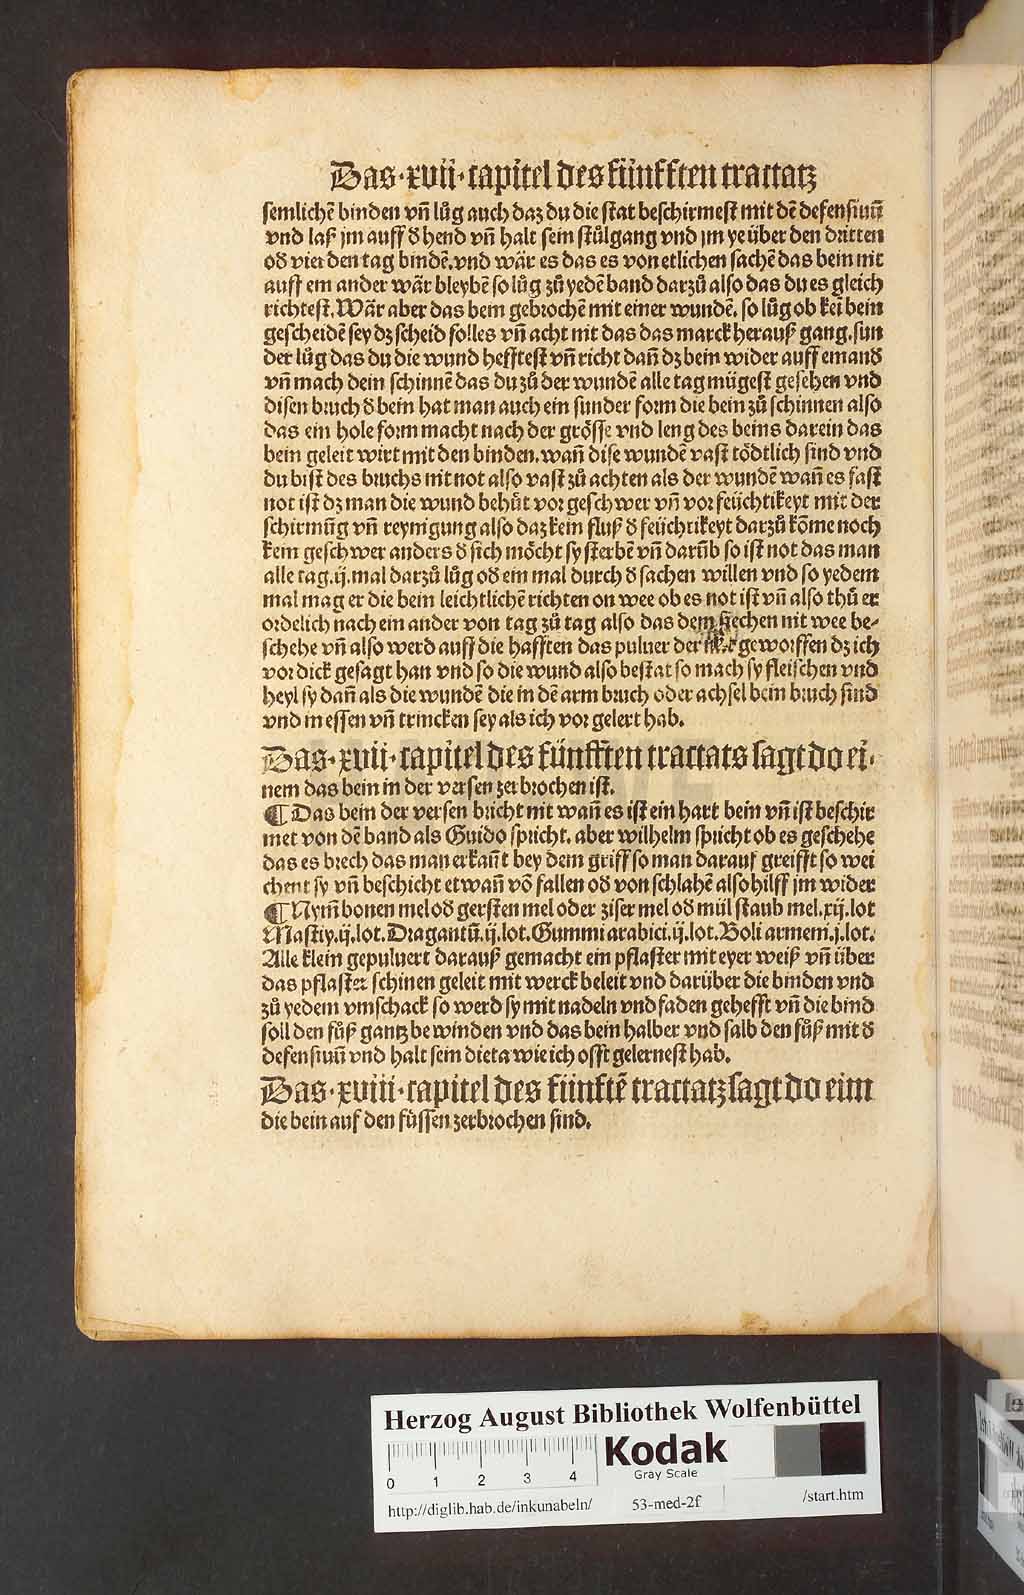 Das·xvii·capitel des fünfften tractatz
semlichē binden vñ lůg auch daz du die stat beschirmest mit dē defensiuū
vnd laß jm auff ð hend vñ halt sein stůlgang vnd jm ye über den dritten
oð vierden tag bindē.vnd wār es das es von etlichen sachē das bein nit
auff em ander wār bleybē so lůg zů yedē band darzů also das du es gleich
richtest.Wār aber das bein gebrochē mit einer wundē. so lůg ob kei bein
gescheidē sey dz scheid solles vñ acht nit das das marck herauß gang.sun
der lůg das du die wund hefftest vñ richt dañ dz bein wider auff emanð
vñ mach dein schinnē das du zů der wundē alle tag mügest gesehen vnd
disen bruch ð bein hat man auch ein sunder form die bein zů schinnen also
das ein hole form macht nach der grösse vnd leng des beins darein das
bein geleit wirt mit den binden.wañ dise wundē vast tödtlich sind vnd
du bist des bruchs nit not also vast zů achten als der wundē wañ es fast
not ist dz man die wund behůt vor geschwer vñ vor feüchtikeyt mit der
schirmūg vñ reynigung also daz kein fluß ð feüchtikeyt darzů kōme noch
kein geschwer anders ð sich möcht sy sterbē vñ darūb so ist not das man
alle tag.ij.mal darzů lůg oð ein mal durch ð sachen willen vnd so yedem
mal mag er die bein leichtlichē richten on wee ob es not ist vñ also thů er
ordelich nach ein ander von tag zů tag also das dem siechen nit wee be⸗
schehe vñ also werd auff die hafften das puluer der geworffen dz ich
vor dick gesagt han vnd so die wund also bestat so mach sy fleischen vnd
heyl sy dañ als die wundē die in dē arm bruch oder achsel bein bruch sind
vnd in essen vñ trincken sey als ich vor gelert hab.
Das·xvii·capitel des fünfften tractats sagt do ei⸗
nem das bein in der versen zerbrochen ist.
¶ Das bein der versen bricht nit wañ es ist ein hart bein vñ ist beschir
met von dē band als Guido spricht. aber wilhelm spricht ob es geschehe
das es brech das man erkañt bey dem griff so man darauf greifft so wei
chent sy vñ beschicht etwañ vō fallen oð von schlahē also hilff jm wider
¶ Nym̄ bonen mel oð gersten mel oder ziser mel oð mül staub mel.xij.lot
Mastix.ij.lot.Dragantū.ij.lot.Gummi arabici.ij.lot.Boli armeni.j.lot.
Alle klein gepuluert darauß gemacht ein pflaster mit eyer weiß vñ über
das pflaster schinen geleit mit werck beleit vnd darüber die binden vnd
zů yedem vmschack so werd sy mit nadeln vnd faden gehefft vñ die bind
soll den fůß gantz bewinden vnd das bein halber vnd salb den fůß mit ð
defensiuū vnd halt sein dieta wie ich offt gelernest hab.
Das·xviii·capitel des fünftē tractatz sagt do eim
die bein auf den füssen zerbrochen sind.
Herzog August Bibliothek Wolfenbüttel
Kodak
Gray Scale
0 1 2 3 4
http://diglib.hab.de/inkunabeln/ 53-med-2f /start.htm